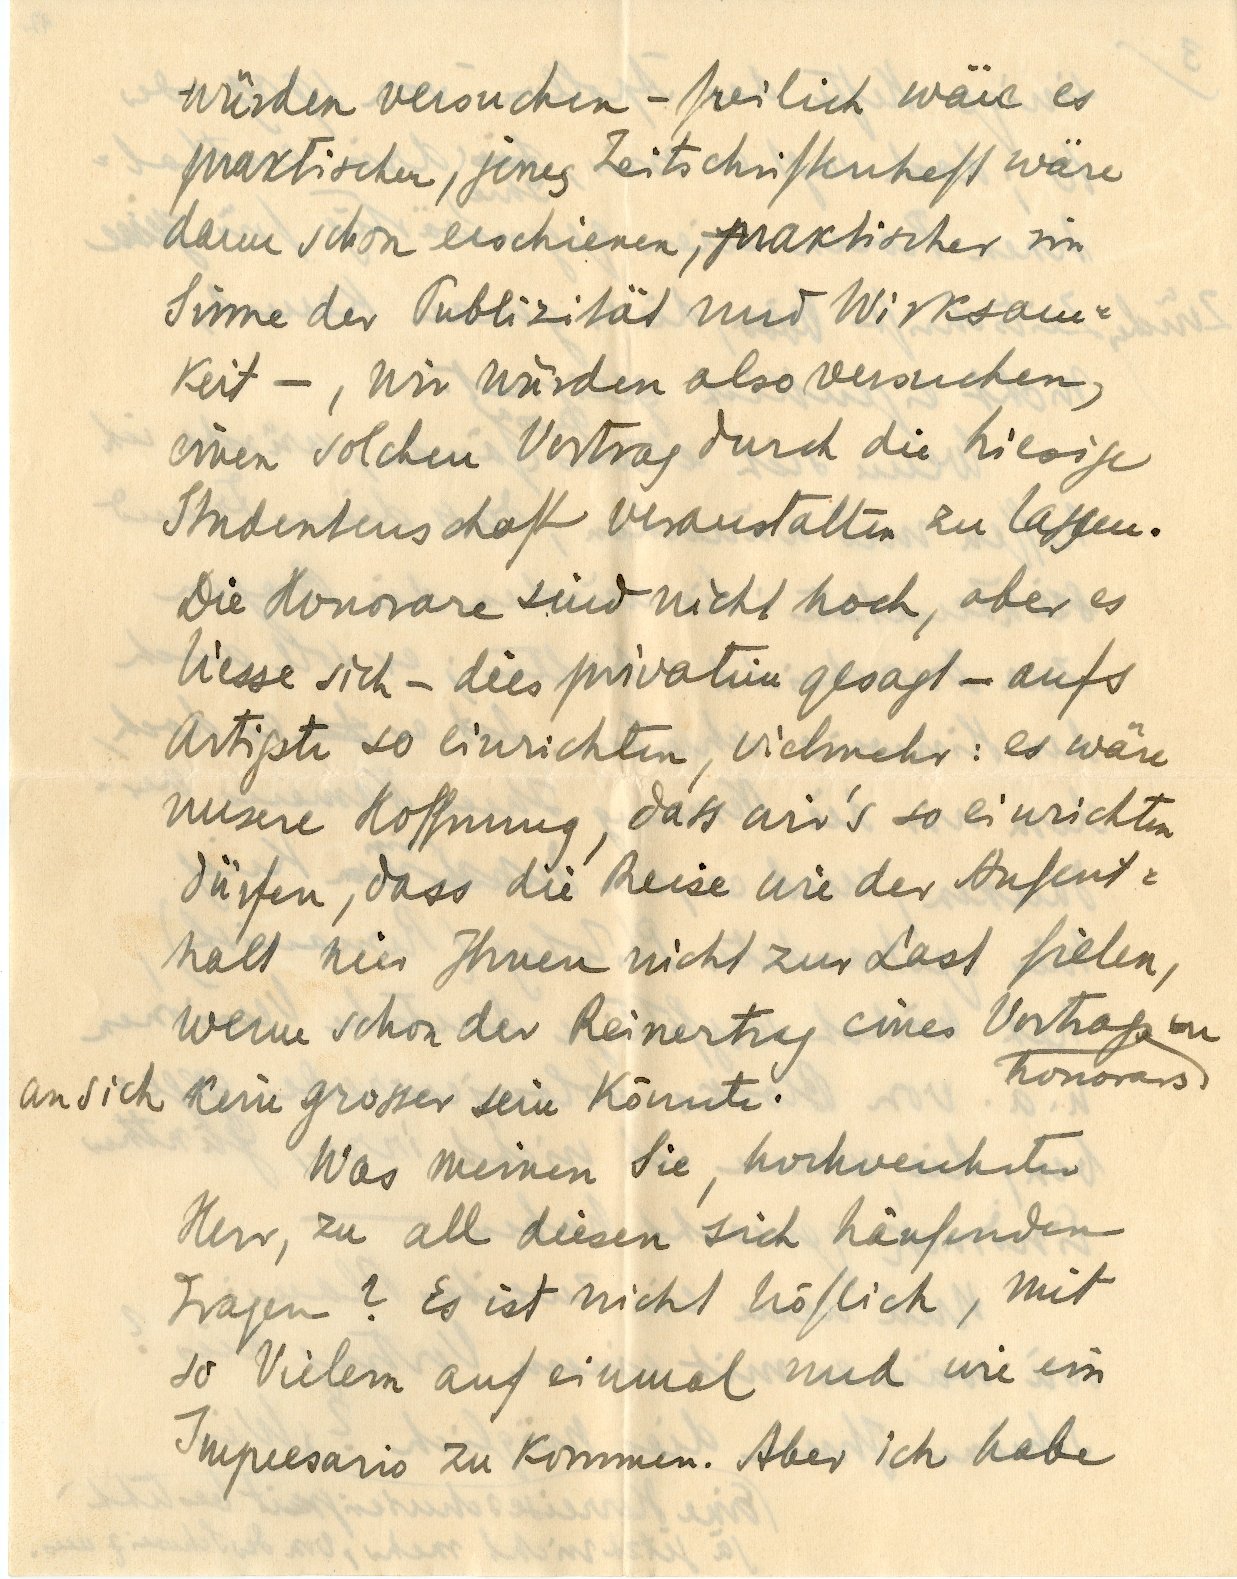 würden versuchen – freilich wäre es
praktischer, jenes Zeitschriftenheft wäre
dann schon erschienen, praktischer im
Sinne der Publizität und Wirksam=
keit –, wir würden also versuchen,
einen solchen Vortrag durch die hiesige
Studentenschaft veranstalten zu lassen.
Die Honorare sind nicht hoch, aber es
liesse sich – dies privatim gesagt – aufs
Artigste so einrichten, vielmehr: es wäre
unsere Hoffnung, dass wir's so einrichten
dürfen, dass die Reise wie der Aufent=
halt hier Ihnen nicht zur Last fielen,
wenn schon der Reinertrag eines Vortrags
honorars
an sich kein grosser sein könnte.
Was meinen Sie, hochverehrter
Herr, zu all diesen sich häufenden
Fragen? Es ist nicht höflich, mit
so Vielem auf einmal und wie ein
Impresario zu kommen. Aber ich habe